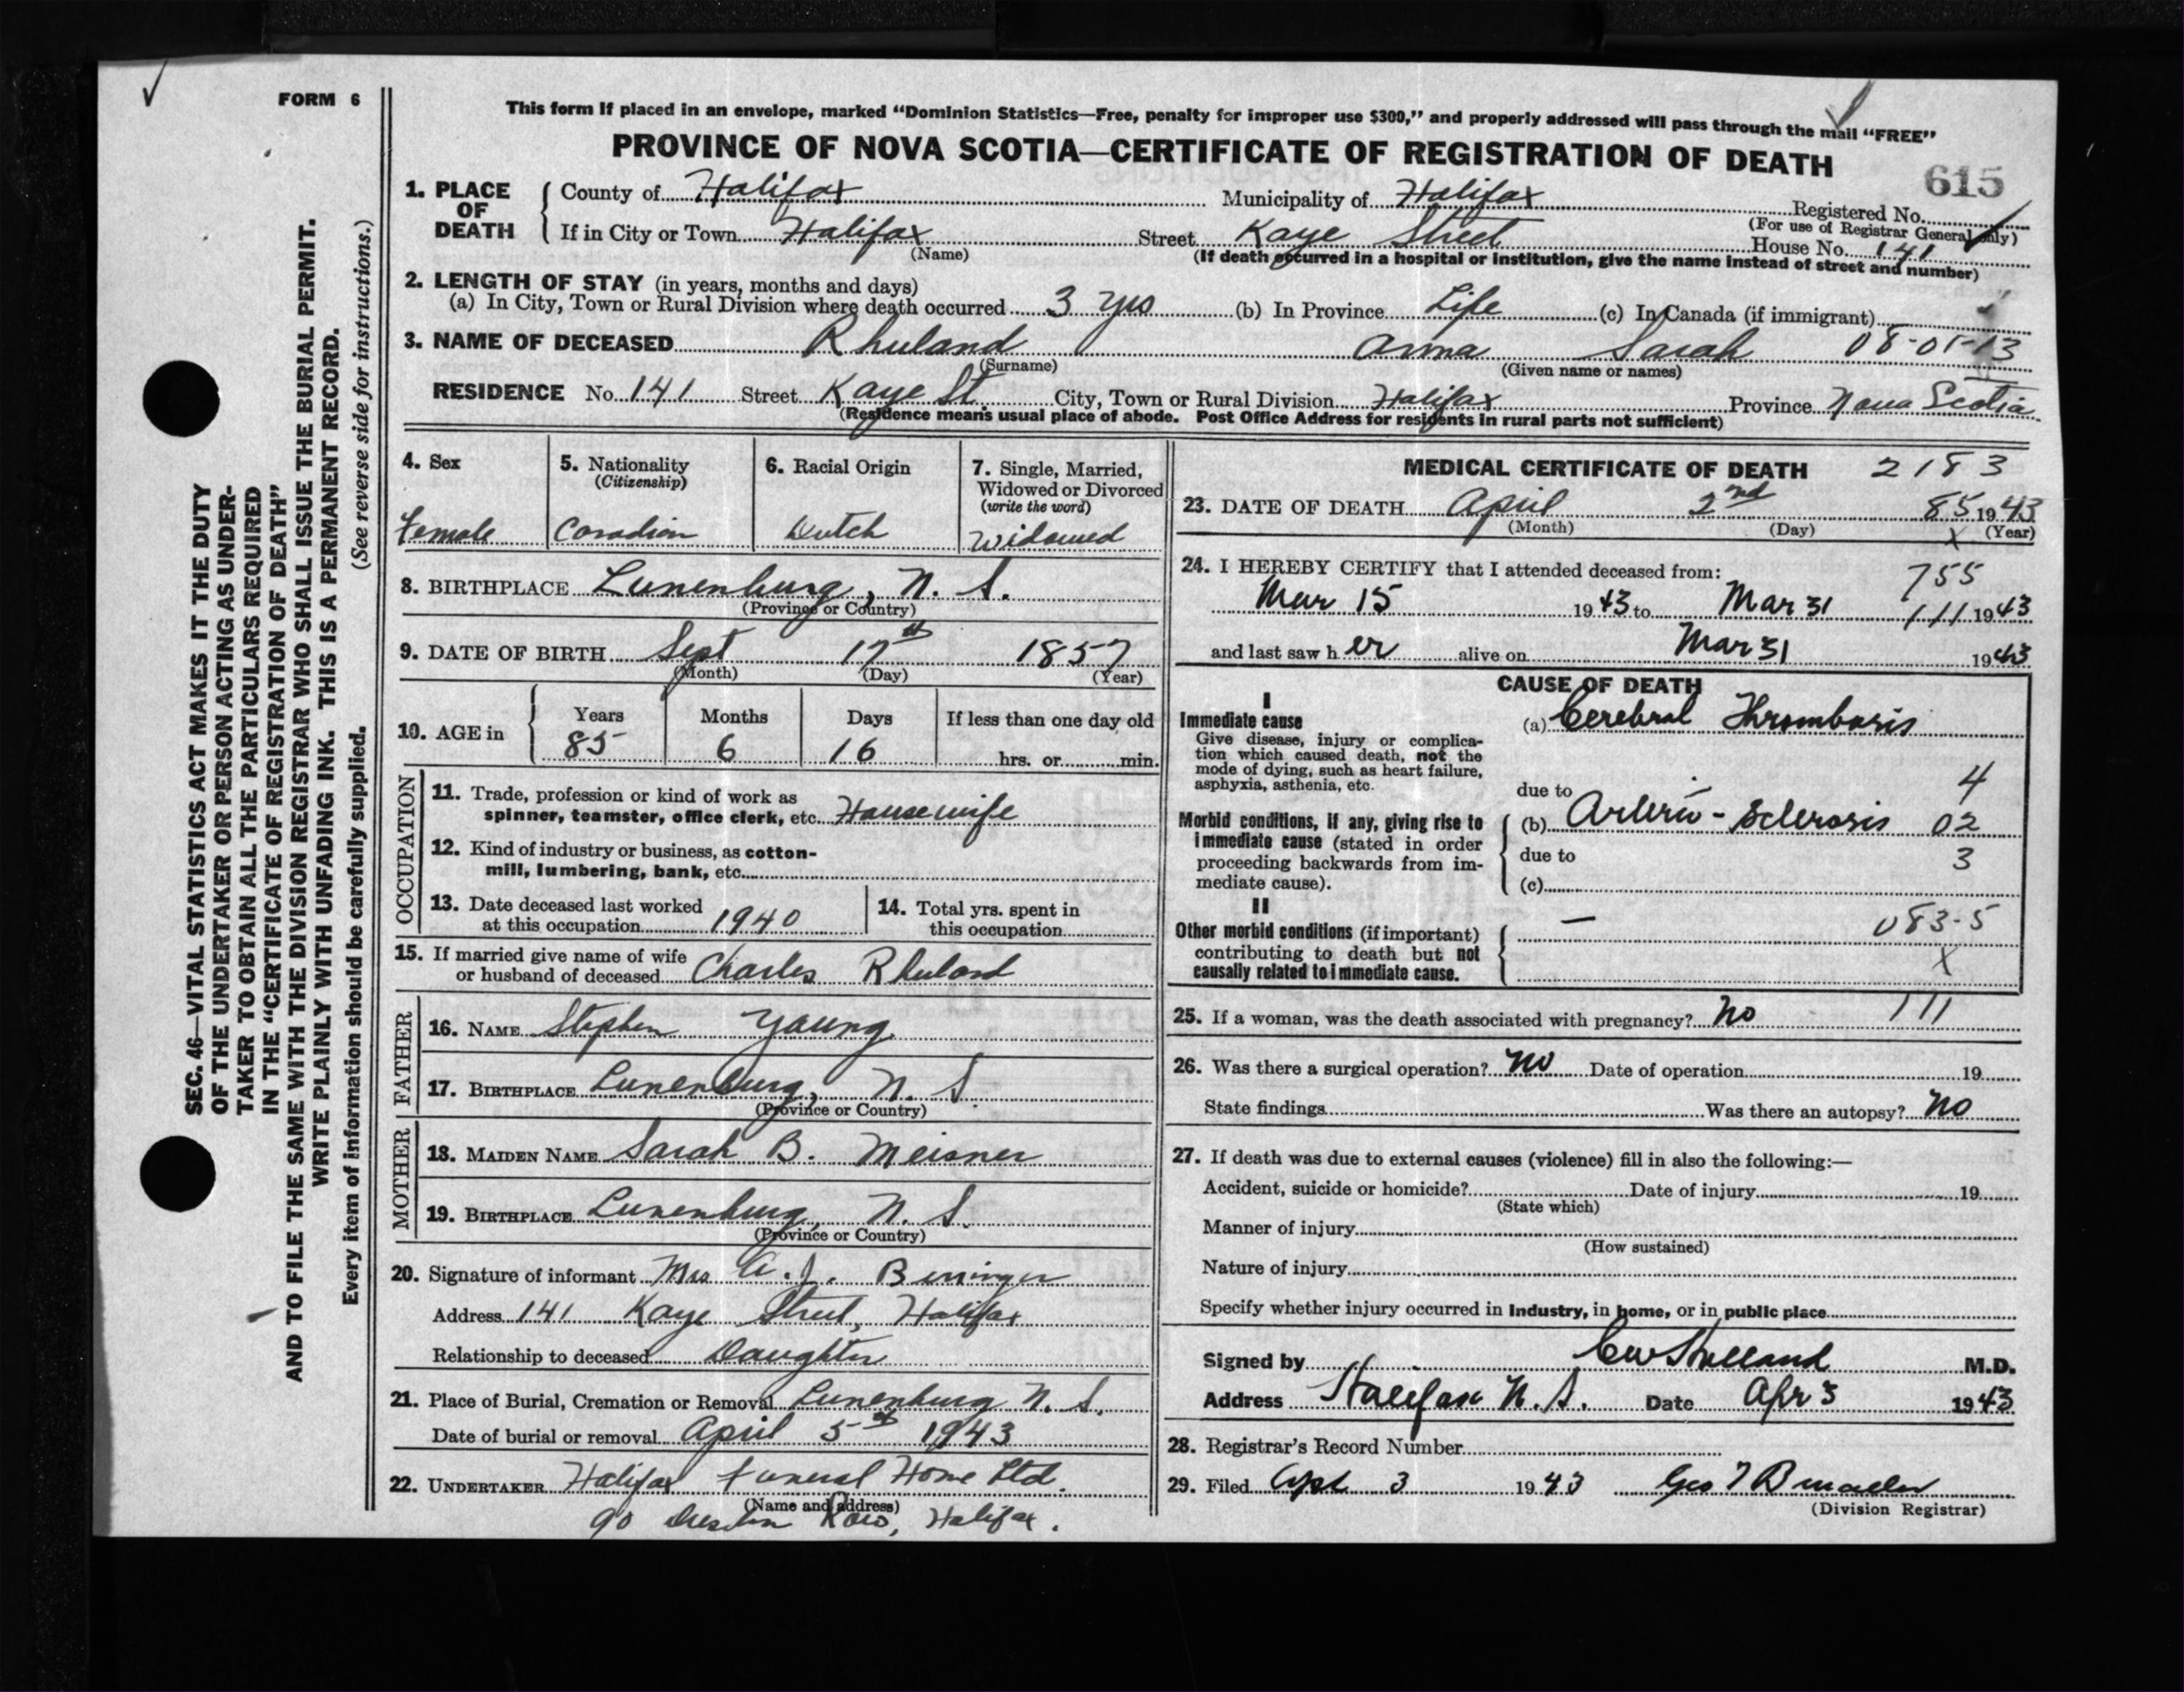 FORM 6
This form if placed in an envelope, marked “Dominion Statistics—Free, penalty for improper use $300,” and properly addressed will pass through the mail “FREE”
PROVINCE OF NOVA SCOTIA—CERTIFICATE OF REGISTRATION OF DEATH
615
1. PLACE OF DEATH
County of Halifax Municipality of Halifax Registered No.
(For use of Registrar General only)
If in City or Town Halifax Street Kaye Street House No. 141
(Name) (If death occurred in a hospital or institution, give the name instead of street and number)
2. LENGTH OF STAY (in years, months and days)
(a) In City, Town or Rural Division where death occurred 3 yrs (b) In Province Life (c) In Canada (if immigrant)
3. NAME OF DECEASED Rhuland Anna Sarah 08-01-13
(Surname) (Given name or names)
RESIDENCE No. 141 Street Kaye St City, Town or Rural Division Halifax Province Nova Scotia
(Residence means usual place of abode. Post Office Address for residents in rural parts not sufficient)
4. Sex
Female
5. Nationality
(Citizenship)
Canadian
6. Racial Origin
Dutch
7. Single, Married,
Widowed or Divorced
(write the word)
Widowed
8. BIRTHPLACE Lunenburg, N. S.
(Province or Country)
9. DATE OF BIRTH Sept 17th 1857
(Month) (Day) (Year)
10. AGE in
Years Months Days If less than one day old
85 6 16 hrs. or min.
OCCUPATION
11. Trade, profession or kind of work as
spinner, teamster, office clerk, etc. Housewife
12. Kind of industry or business, as cotton-
mill, lumbering, bank, etc.
13. Date deceased last worked
at this occupation 1940
14. Total yrs. spent in
this occupation
15. If married give name of wife
or husband of deceased Charles Rhuland
FATHER
16. NAME Stephen Young
17. BIRTHPLACE Lunenburg, N. S.
(Province or Country)
MOTHER
18. MAIDEN NAME Sarah B. Meisner
19. BIRTHPLACE Lunenburg, N. S.
(Province or Country)
20. Signature of informant Mrs A. J. Berringer
Address 141 Kaye Street, Halifax
Relationship to deceased Daughter
21. Place of Burial, Cremation or Removal Lunenburg N. S.
Date of burial or removal April 5th 1943
22. UNDERTAKER Halifax Funeral Home Ltd.
(Name and address)
90 Row, Halifax.
MEDICAL CERTIFICATE OF DEATH 2183
23. DATE OF DEATH April 2nd 85 1943
(Month) (Day) X (Year)
24. I HEREBY CERTIFY that I attended deceased from: 755
Mar 15 1943 to Mar 31 111 1943
and last saw her alive on Mar 31 1943
CAUSE OF DEATH
I
Immediate cause
Give disease, injury or complica-
tion which caused death, not the
mode of dying, such as heart failure,
asphyxia, asthenia, etc.
(a) Cerebral Thrombosis
due to 4
Morbid conditions, if any, giving rise to
immediate cause (stated in order
proceeding backwards from im-
mediate cause).
(b) Arterio-Sclerosis 02
due to 3
(c)
II
Other morbid conditions (if important)
contributing to death but not
causally related to immediate cause.
— 083-5
X
25. If a woman, was the death associated with pregnancy? No 111
26. Was there a surgical operation? No Date of operation 19
State findings Was there an autopsy? No
27. If death was due to external causes (violence) fill in also the following:—
Accident, suicide or homicide? Date of injury 19
(State which)
Manner of injury
(How sustained)
Nature of injury
Specify whether injury occurred in Industry, in home, or in public place
Signed by M.D.
Address Halifax N. S. Date Apr 3 1943
28. Registrar's Record Number
29. Filed Apl 3 1943 Geo
(Division Registrar)
SEC. 46—VITAL STATISTICS ACT MAKES IT THE DUTY
OF THE UNDERTAKER OR PERSON ACTING AS UNDER-
TAKER TO OBTAIN ALL THE PARTICULARS REQUIRED
IN THE “CERTIFICATE OF REGISTRATION OF DEATH”
AND TO FILE THE SAME WITH THE DIVISION REGISTRAR WHO SHALL ISSUE THE BURIAL PERMIT.
WRITE PLAINLY WITH UNFADING INK. THIS IS A PERMANENT RECORD.
Every item of information should be carefully supplied. (See reverse side for instructions.)